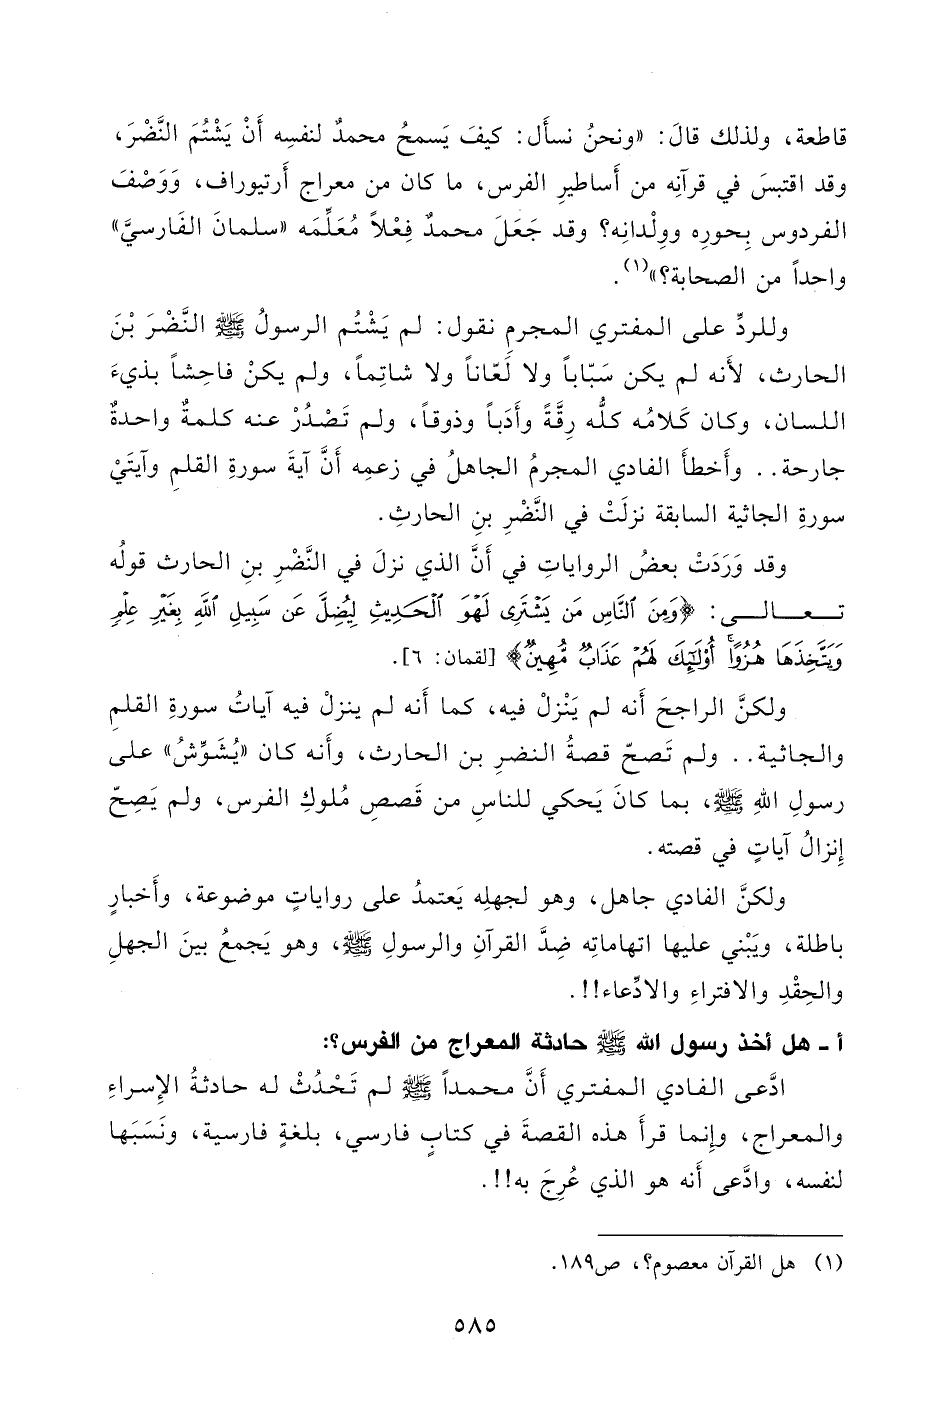 قاطعة، ولذلك قالَ: «ونحنُ نسأل: كيفَ يَسمحُ محمدٌ لنفسِه أَنْ يَشْتُمَ النَّضْرَ،
وقد اقتبسَ في قرآنِه من أَساطيرِ الفرس، ما كان من معراج أَرتيوراف، وَوَصْفَ
الفردوس بِحورِه ووِلْدانِه؟ وقد جَعَلَ محمدٌ فِعْلاً مُعَلِّمَه «سلمانَ الفَارسيَّ»
واحداً من الصحابة؟»(١).
وللردِّ على المفتري المجرمِ نقول: لم يَشْتُم الرسولُ ﷺ النَّضْرَ بْنَ
الحارث، لأنه لم يكن سَبّاباً ولا لَعّاناً ولا شاتِماً، ولم يكنْ فاحِشاً بذيءَ
اللسان، وكان كَلامُه كلُّه رِقَّةً وأَدَباً وذوقاً، ولم تَصْدُرْ عنه كلمةٌ واحدةٌ
جارحة.. وأَخطأَ الفادي المجرمُ الجاهلُ في زعمِه أَنَّ آيةَ سورةِ القلمِ وآيتَيْ
سورةِ الجاثية السابقة نزلَتْ في النَّضْرِ بنِ الحارثِ.
وقد وَرَدَتْ بعضُ الرواياتِ في أَنَّ الذي نزلَ في النَّضْرِ بنِ الحارث قولُه
تـعـالـى: ﴿وَمِنَ ٱلنَّاسِ مَن يَشْتَرِى لَهْوَ ٱلْحَدِيثِ لِيُضِلَّ عَن سَبِيلِ ٱللَّهِ بِغَيْرِ عِلْمٍ
وَيَتَّخِذَهَا هُزُوًا ۚ أُو۟لَٰٓئِكَ لَهُمْ عَذَابٌ مُّهِينٌ﴾ [لقمان: ٦].
ولكنَّ الراجحَ أَنه لم يَنْزِلْ فيه، كما أَنه لم ينزلْ فيه آياتُ سورةِ القلمِ
والجاثية.. ولم تَصحّ قصةُ النضرِ بن الحارث، وأَنه كان «يُشَوِّشُ» على
رسولِ اللهِ ﷺ، بما كانَ يَحكي للناسِ من قَصصِ مُلوكِ الفرس، ولم يَصِحّ
إِنزالُ آياتٍ في قصته.
ولكنَّ الفادي جاهل، وهو لجهلِه يَعتمدُ على رواياتٍ موضوعة، وأَخبارٍ
باطلة، ويَبْني عليها اتهاماتِه ضِدَّ القرآنِ والرسولِ ﷺ، وهو يَجمعُ بينَ الجهلِ
والحِقْدِ والافتراءِ والادِّعاء!!.
أ ـ هل أخذ رسول الله ﷺ حادثة المعراج من الفرس؟:
ادَّعى الفادي المفتري أَنَّ محمداً ﷺ لم تَحْدُثْ له حادثةُ الإِسراءِ
والمعراج، وإِنما قرأَ هذه القصةَ في كتابٍ فارسي، بلغةٍ فارسية، ونَسَبَها
لنفسه، وادَّعى أَنه هو الذي عُرِجَ به!!.
(١) هل القرآن معصوم؟، ص١٨٩.
٥٨٥